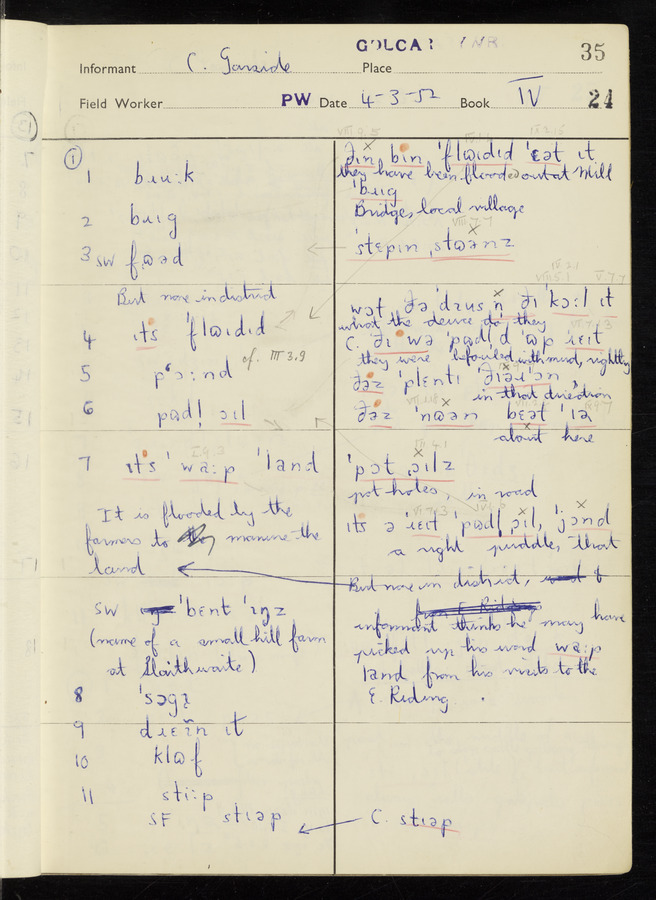 GOLCAR YNR
35
Informant C. Garside Place
Field Worker PW Date 4-3-52 Book IV 24
①
1 bɪu:k
2 bɹɪg
3 SW fɷəd
But none in district
4 ɪts 'flɷɪdɪd
5 pɔ:nd
cf. III 3.9
6 pɷdl̩ ɔɪl
7 ɪts 'wa:p 'land
It is flooded by the
farmers to manure the
land
SW 'bɛnt 'ɪŋz
(name of a small hill farm
at Slaithwaite)
8 'sɔgɪ
9 dɹɛɪn ɪt
10 klɷf
11 sti:p
SF stɪəp
ðɪn bɪn 'flɷɪdɪd 'ɛət ɪt
they have been flooded out at Mill
'bɹɪg
Bridges, local village
'stɛpɪn ˌstɷənz
wɔt ðə 'dɪus n̩ ðɪ 'kɔ:l ɪt
what the deuce do they
C. ðɪ wə 'pɷdl̩d 'ɷp ɹɛɪt
they were befouled with mud, rightly
ðəz 'plɛntɪ
in that direction
ðəz 'nɷən bɛət 'ɪə
about here
'pɔt ˌɔɪlz
pot holes, in road
ɪts ə 'ɹɛɪt 'pɷdl̩ ˌɔɪl, 'jɔnd
a right puddle, that
But none in district,
informant thinks he may have
picked up his word wa:p
land from his visits to the
E. Riding.
C. stɪəp